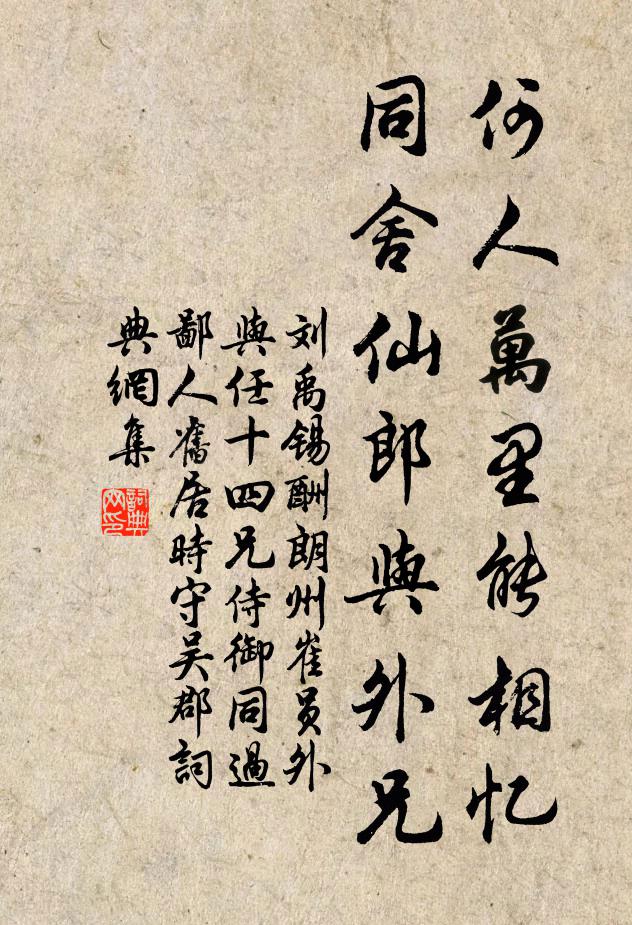 何人萬里能相忆
同舍仙郎與外兄
刘禹锡酬朗州崔员外
與任十四兄侍御同過
鄙人舊居時守吴郡詞
典網集
詞典
网印